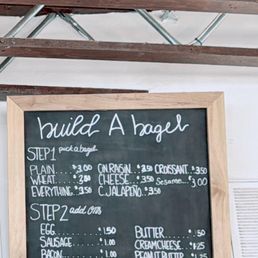 build A bagel
STEP 1 pick a bagel
PLAIN....$3.00 CN.RAISIN..$3.50 CROISSANT.$3.50
WHEAT....$3.50 CHEESE...$3.50 Sesame...$3.00
EVERYTHING..$3.50 C.JALAPEÑO..$3.50
STEP 2 add ons
EGG.........$1.50 BUTTER.......$1.50
SAUSAGE......$1.00 CREAMCHEESE...$1.25
BACON.......$1.00 PEANUT BUTTER..$1.25